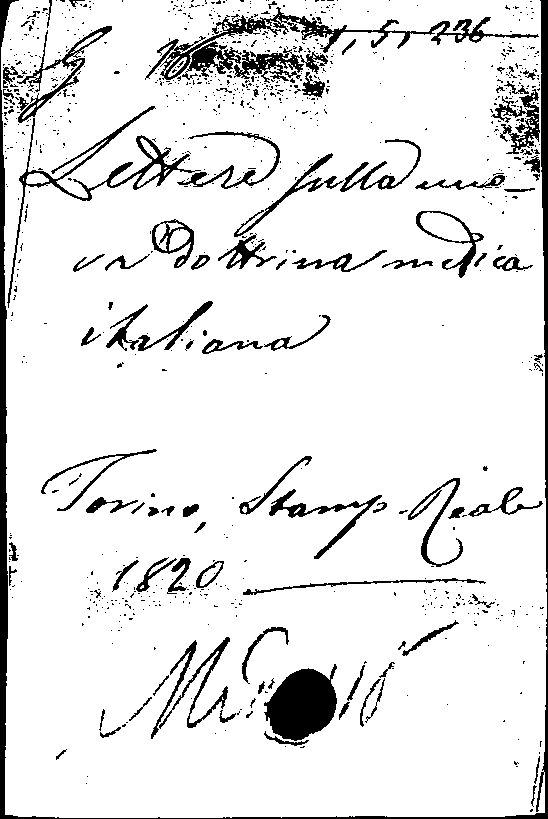 G. 1, 5, 236
Lettere sulla nuo-
va dottrina medica
italiana
Torino, Stamp. Reale
1820